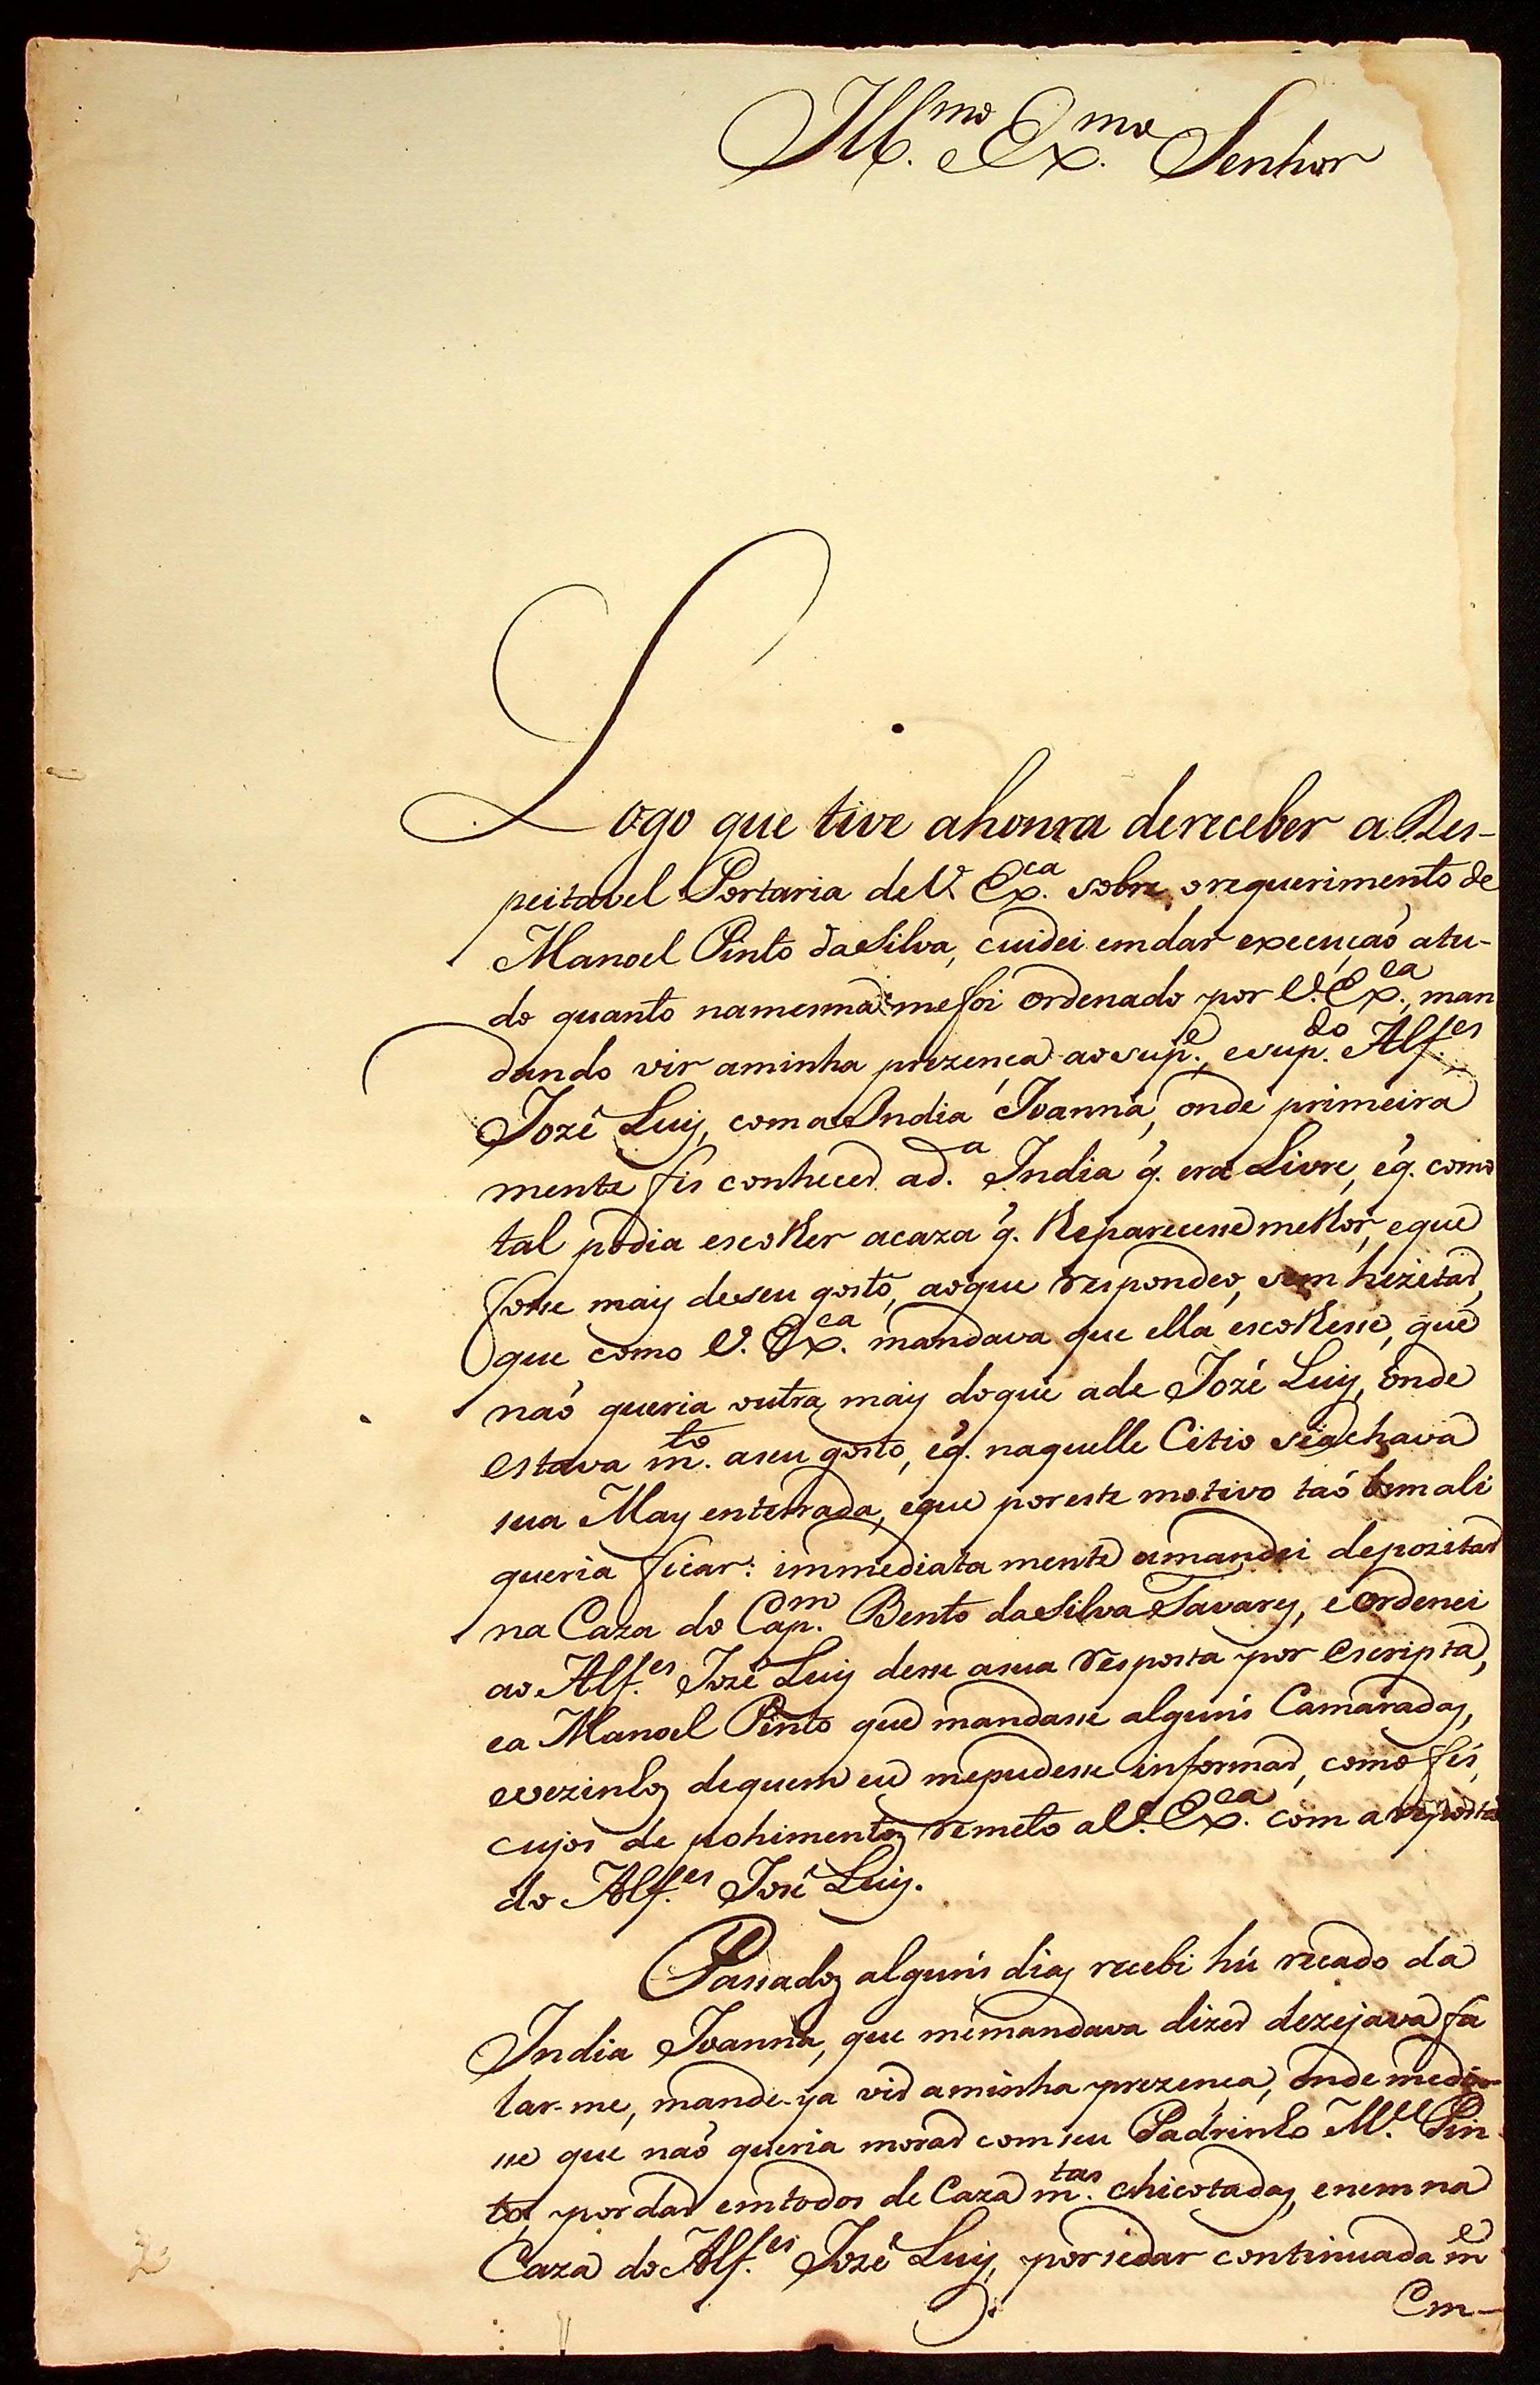 Ill.mo e Ex.mo Senhor
Logo que tive ahonra dereceber a Res-
peitavel Portaria deV. Ex.ca sobre orequerimento de
Manoel Pinto daSilva, cuidei emdar execuçaó atu-
do quanto namesma mefoi ordenado por V. Ex.ca, man
dando vir aminha prezença aosup.e, esup.do Alf.es
Jozé Luis, coma India Joanna, onde primeira
mente fis conhecer ad.a India q̃. era Livre, eq̃. como
tal podia escolher acaza q̃. lheparecesse melhor, eque
fosse mais deseu gosto, aoque respondeo, sem hezitar,
que como V. Ex.ca mandava que ella escolhesse, que
naó queria outra mais doque ade Jozé Luis, onde
estava m.to aseu gosto, eq̃. naquelle Citio seachava
sua May enterrada, eque poreste motivo taó bem ali
queria ficar: immediata mente amandei depozitar
na Caza do Cap.m Bento daSilva Tavares, eordenei
ao Alf.es Jozé Luis desse asua resposta por escripta,
ea Manoel Pinto que mandasse alguns Camaradas,
evezinhos dequem eu mepudesse informar, como fis,
cujos de pohimentos remeto aV. Ex.ca com aresposta
do Alf.es José Luis.
Passados alguns dias recebi hú recado da
India Joanna, que memandava dizer dezejava fa
lar-me, mande-ya vir aminha prezença, onde medis-
se que naó queria morar comseu Padrinho M.el Pin
to, pordar emtodos de Caza m.tas chicotadas, enem na
Caza do Alf.es Jozé Luis, porsedar continuada m.e
Em-